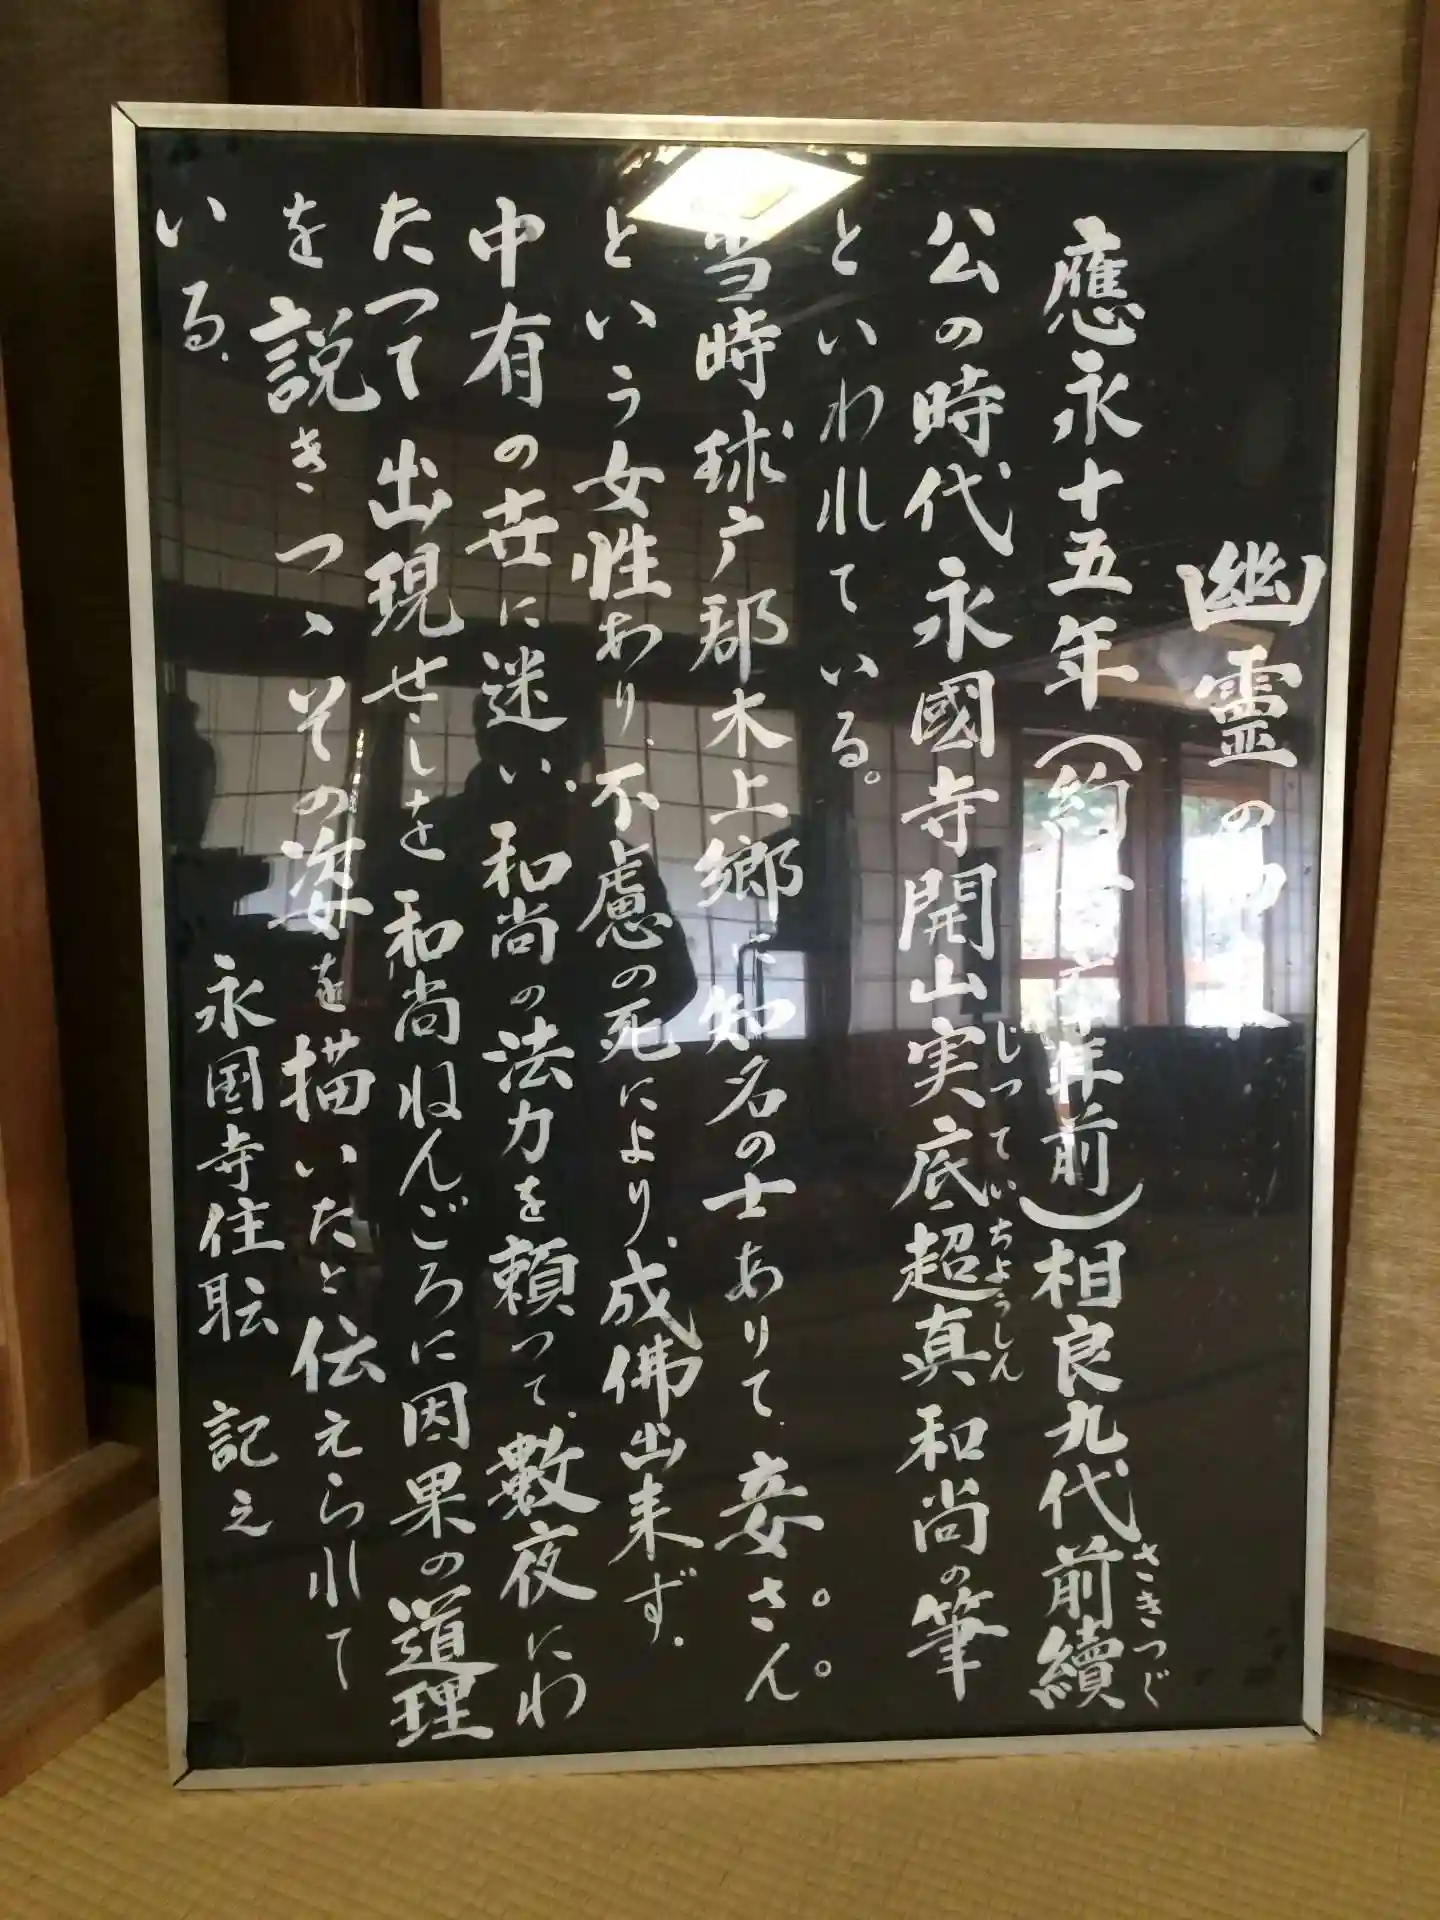 幽霊の由来
應永十五年(約六百年前)相良九代前續さきつぐ
公の時代永國寺開山実底超真じっていちょうしん和尚の筆
といわれている。
当時球广郡木上郷に知名の士ありて、妾さん。
という女性あり、不慮の死により、成佛出来ず、
中有の世に迷い、和尚の法力を頼って、数夜にわ
たって出現せしを和尚ねんごろに因果の道理
を説きつゝその姿を描いたと伝えられて
いる。
永国寺住職 記之